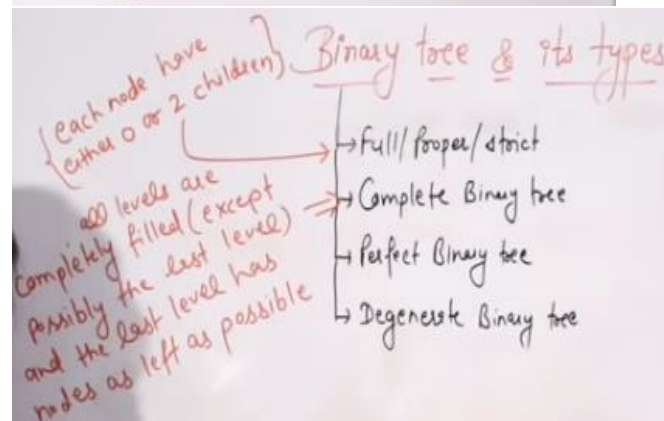 Binary tree & its types
{each node have
either 0 or 2 children}
→ Full/Proper/strict
all levels are
completely filled (except
possibly the last level)
and the last level has
nodes as left as possible
→ Complete Binary tree
→ Perfect Binary tree
→ Degenerate Binary tree